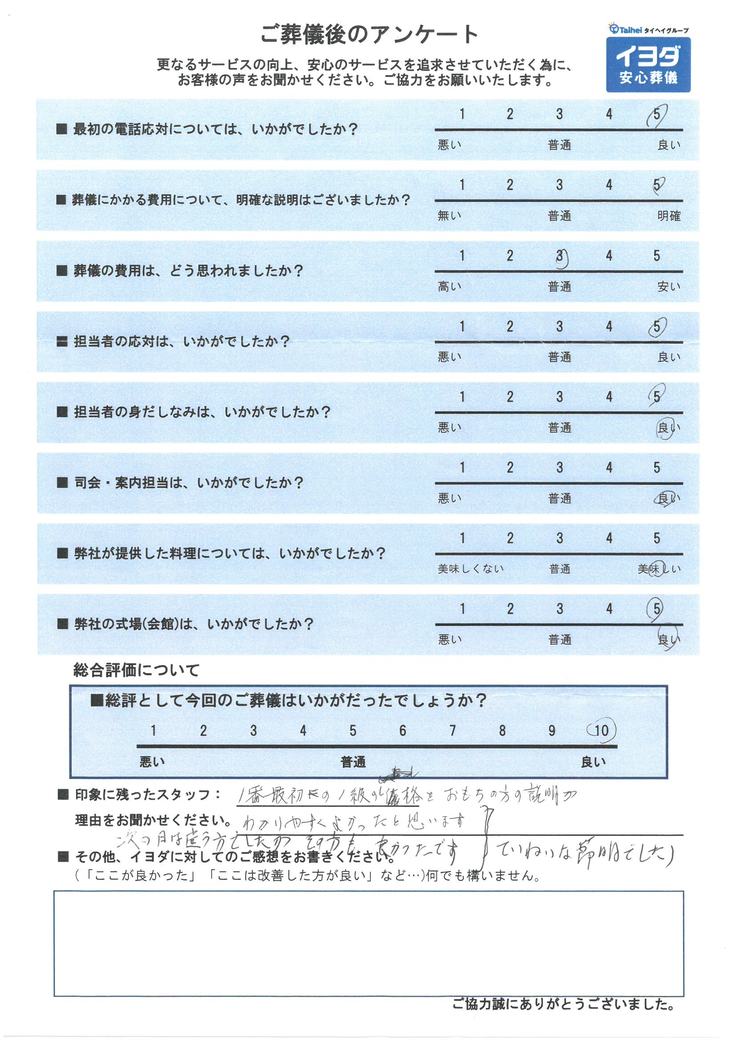 ご葬儀後のアンケート
Taihei タイヘイグループ
イヨダ
安心葬儀
更なるサービスの向上、安心のサービスを追求させていただく為に、
お客様の声をお聞かせください。ご協力をお願いいたします。
■ 最初の電話応対については、いかがでしたか？
1 2 3 4 5
悪い 普通 良い
■ 葬儀にかかる費用について、明確な説明はございましたか？
1 2 3 4 5
無い 普通 明確
■ 葬儀の費用は、どう思われましたか？
1 2 3 4 5
高い 普通 安い
■ 担当者の応対は、いかがでしたか？
1 2 3 4 5
悪い 普通 良い
■ 担当者の身だしなみは、いかがでしたか？
1 2 3 4 5
悪い 普通 良い
■ 司会・案内担当は、いかがでしたか？
1 2 3 4 5
悪い 普通 良い
■ 弊社が提供した料理については、いかがでしたか？
1 2 3 4 5
美味しくない 普通 美味しい
■ 弊社の式場(会館)は、いかがでしたか？
1 2 3 4 5
悪い 普通 良い
総合評価について
■総評として今回のご葬儀はいかがだったでしょうか？
1 2 3 4 5 6 7 8 9 10
悪い 普通 良い
■ 印象に残ったスタッフ： 1番最初の1級の資格をおもちの方の説明が
理由をお聞かせください。わかりやすくよかったと思います
次の日は違う方でしたが その方も よかったです ていねいな説明でした
■ その他、イヨダに対してのご感想をお書きください。
（「ここが良かった」「ここは改善した方が良い」など…)何でも構いません。
ご協力誠にありがとうございました。